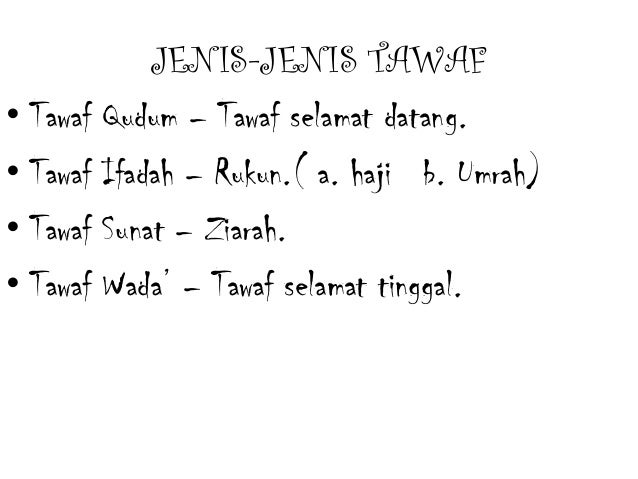 JENIS-JENIS TAWAF
• Tawaf Qudum – Tawaf selamat datang.
• Tawaf Ifadah – Rukun.( a. haji b. Umrah)
• Tawaf Sunat – Ziarah.
• Tawaf Wada' – Tawaf selamat tinggal.